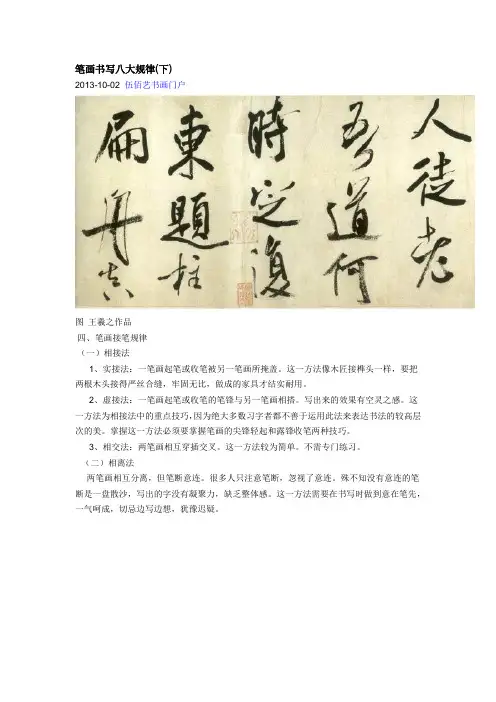 笔画书写八大规律(下)
2013-10-02 伍佰艺书画门户
人徒老
吾道何
時定復
東題柱
扁舟真
图 王羲之作品
四、笔画接笔规律
（一）相接法
1、实接法：一笔画起笔或收笔被另一笔画所掩盖。这一方法像木匠接榫头一样，要把
两根木头接得严丝合缝，牢固无比，做成的家具才结实耐用。
2、虚接法：一笔画起笔或收笔的笔锋与另一笔画相搭。写出来的效果有空灵之感。这
一方法为相接法中的重点技巧，因为绝大多数习字者都不善于运用此法来表达书法的较高层
次的美。掌握这一方法必须要掌握笔画的尖锋轻起和露锋收笔两种技巧。
3、相交法：两笔画相互穿插交叉。这一方法较为简单。不需专门练习。
（二）相离法
两笔画相互分离，但笔断意连。很多人只注意笔断，忽视了意连。殊不知没有意连的笔
断是一盘散沙，写出的字没有凝聚力，缺乏整体感。这一方法需要在书写时做到意在笔先，
一气呵成，切忌边写边想，犹豫迟疑。